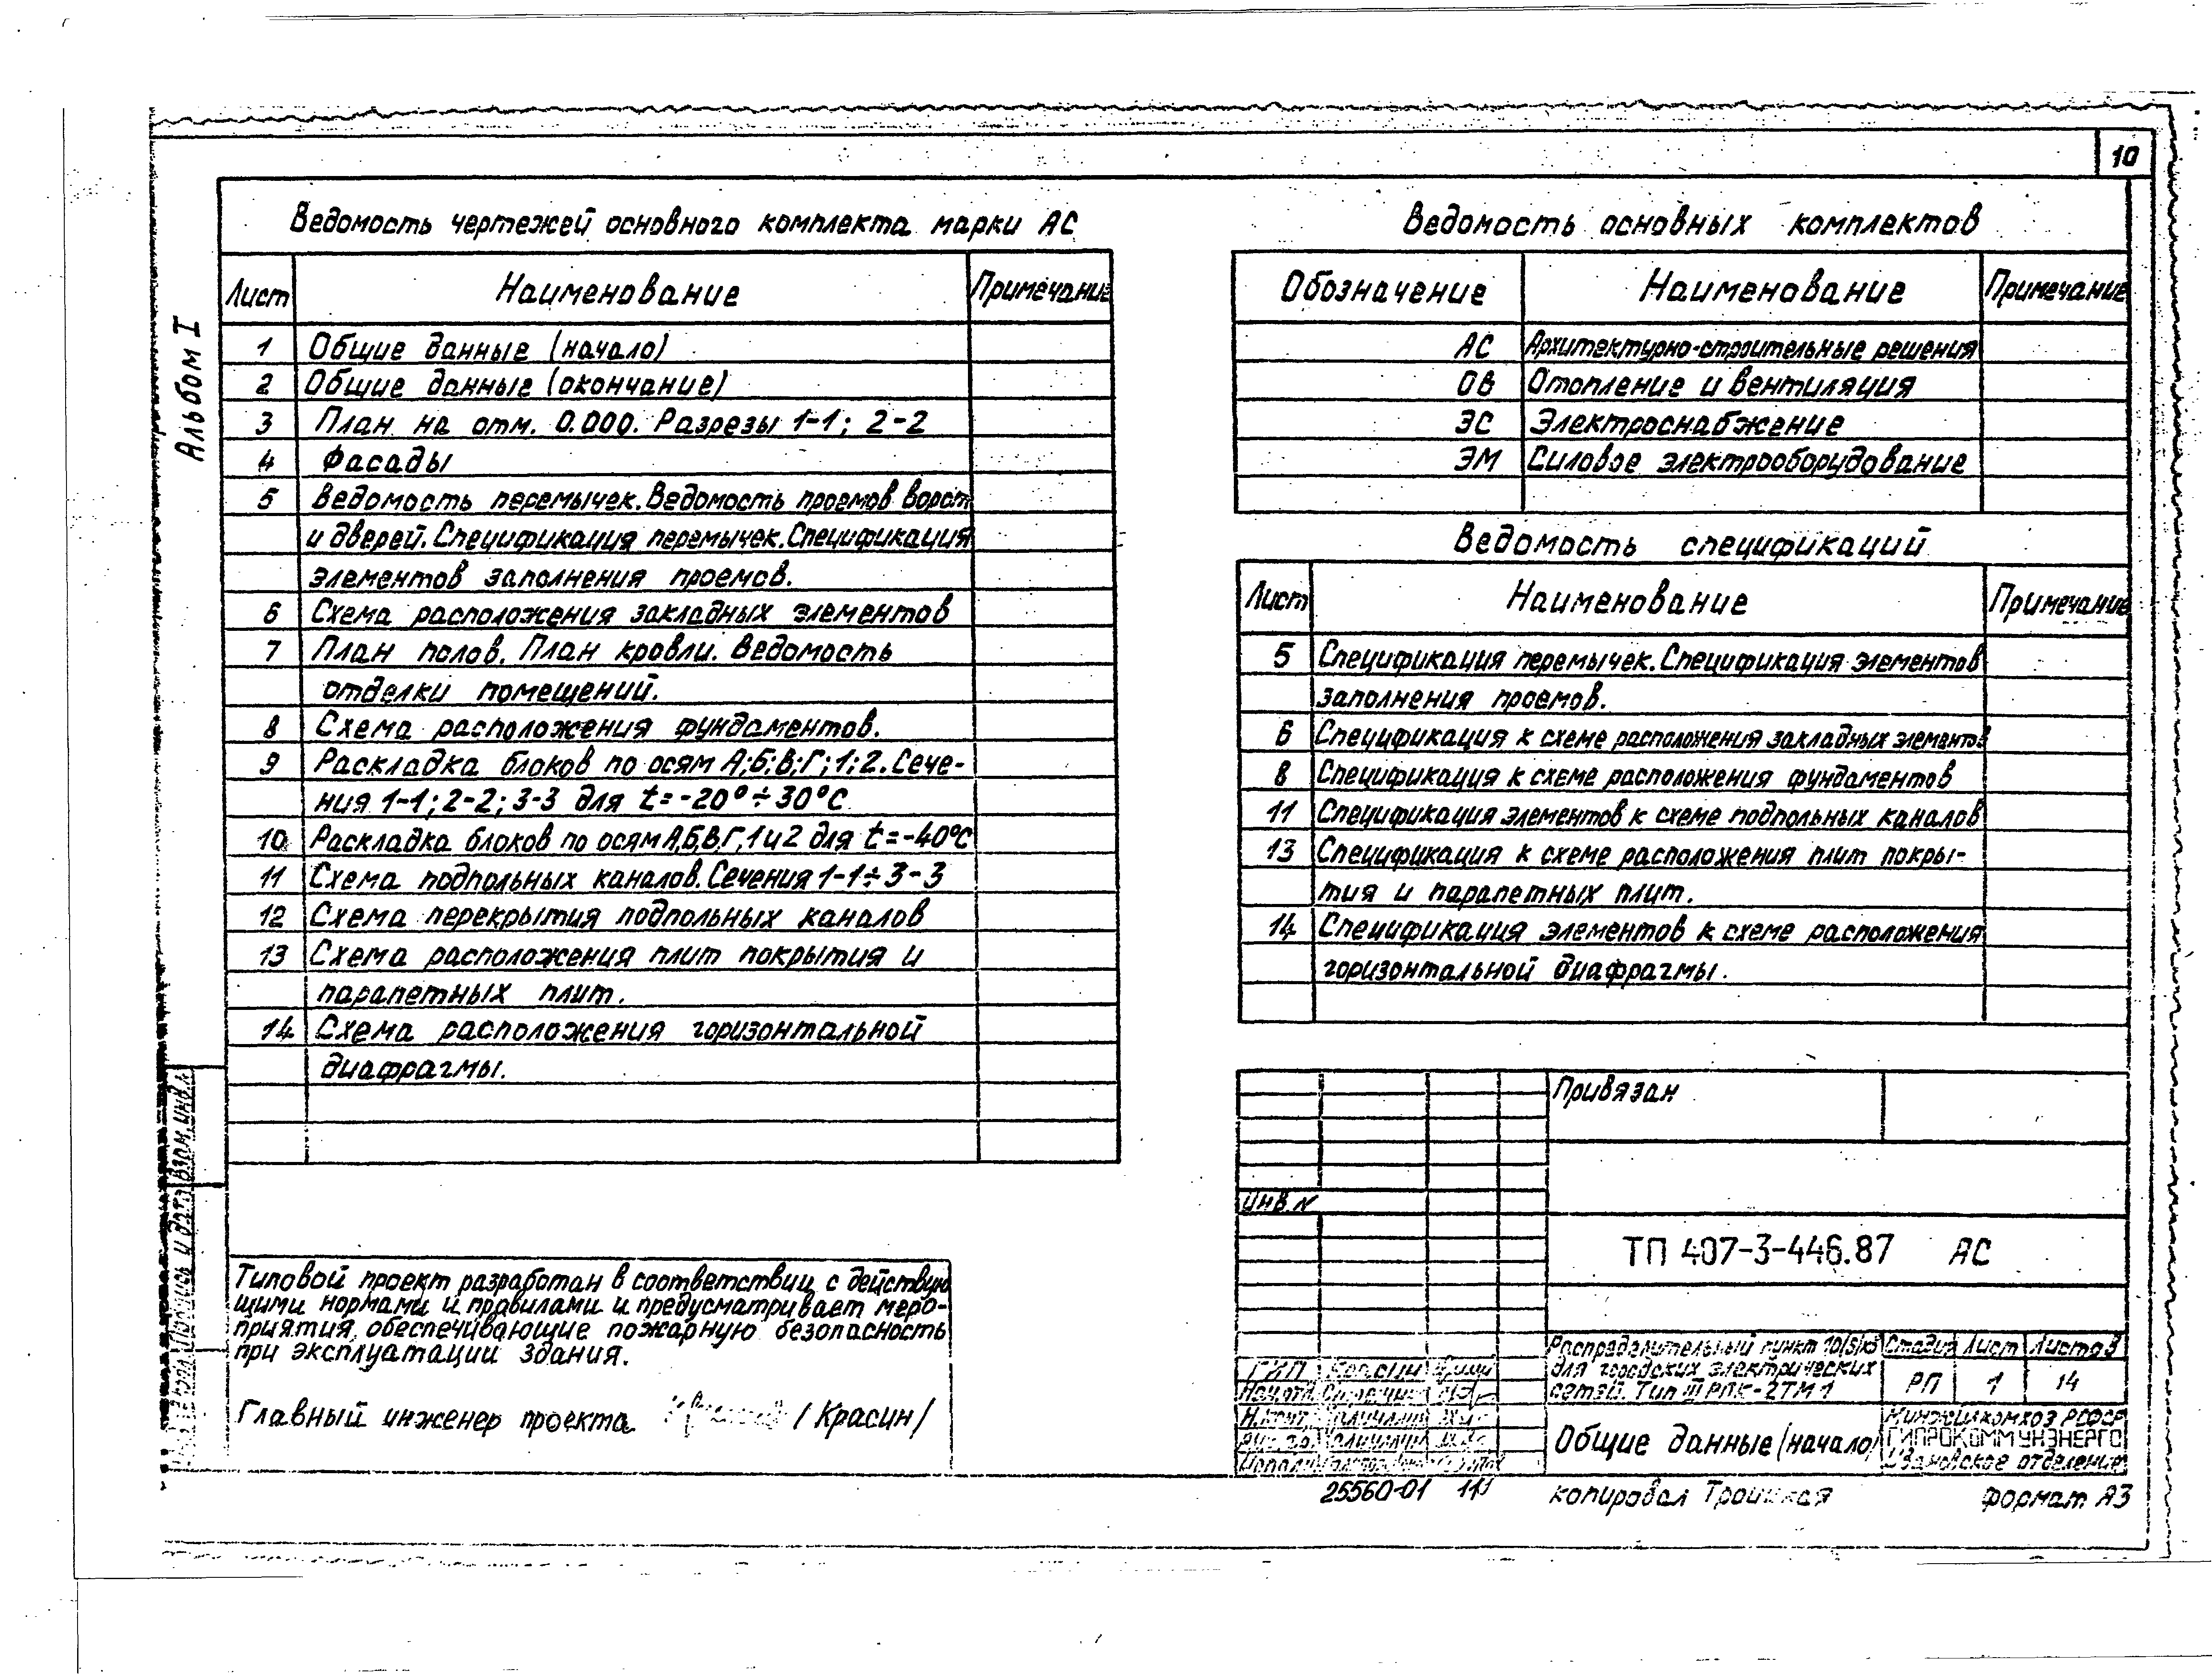 10
Альбом I
Ведомость чертежей основного комплекта марки АС
Лист Наименование Примечание
1 Общие данные (начало)
2 Общие данные (окончание)
3 План на отм. 0.000. Разрезы 1-1; 2-2
4 Фасады
5 Ведомость перемычек. Ведомость проемов ворот
и дверей. Спецификация перемычек. Спецификация
элементов заполнения проемов.
6 Схема расположения закладных элементов
7 План полов. План кровли. Ведомость
отделки помещений.
8 Схема расположения фундаментов.
9 Раскладка блоков по осям А;Б;В;Г;1;2. Сече-
ния 1-1; 2-2; 3-3 для t=-20°÷30°С
10 Раскладка блоков по осям А,Б,В,Г,1 и 2 для t=-40°С
11 Схема подпольных каналов. Сечения 1-1÷3-3
12 Схема перекрытия подпольных каналов
13 Схема расположения плит покрытия и
парапетных плит.
14 Схема расположения горизонтальной
диафрагмы.
Типовой проект разработан в соответствии с действую
щими нормами и правилами и предусматривает меро-
приятия, обеспечивающие пожарную безопасность
при эксплуатации здания.
Главный инженер проекта /Красин/
Ведомость основных комплектов
Обозначение Наименование Примечание
АС Архитектурно-строительные решения
ОВ Отопление и вентиляция
ЭС Электроснабжение
ЭМ Силовое электрооборудование
Ведомость спецификаций
Лист Наименование Примечание
5 Спецификация перемычек. Спецификация элементов
заполнения проемов.
6 Спецификация к схеме расположения закладных элементов
8 Спецификация к схеме расположения фундаментов
11 Спецификация элементов к схеме подпольных каналов
13 Спецификация к схеме расположения плит покры-
тия и парапетных плит.
14 Спецификация элементов к схеме расположения
горизонтальной диафрагмы.
Привязан
Инв. N
ТП 407-3-446.87 АС
Распределительный пункт 10(6)кВ
для городских электрических
сетей. Тип III РПК-2ТМ1
Стадия Лист Листов
РП 1 14
ГИП Красин
Общие данные (начало)
Минжилкомхоз РСФСР
ГИПРОКОММУНЭНЕРГО
Ивановское отделение
25560-01 11
копировал Троицкая
формат А3
Подпись и дата
Взам. инв. N